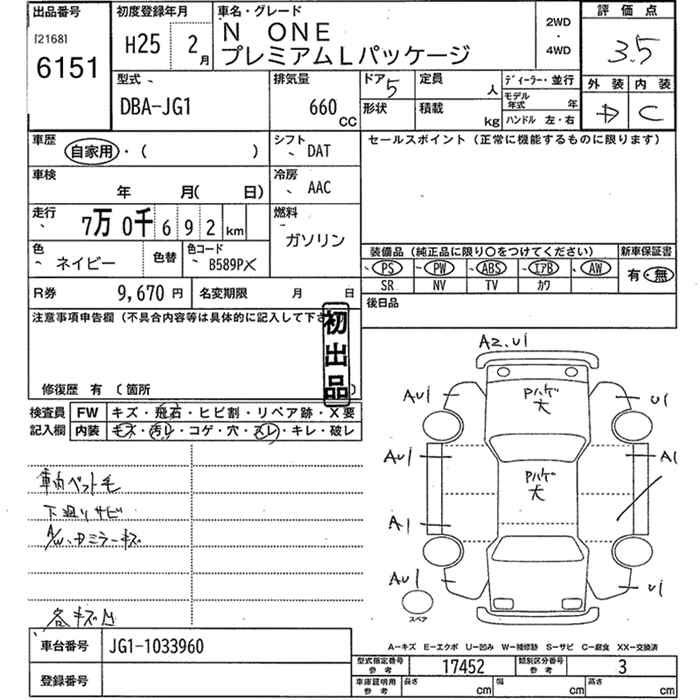 出品番号 初度登録年月 車名・グレード 評価点
[2168]
6151
H25 2月
N ONE
プレミアムLパッケージ
2WD
・
4WD
3.5
外装 内装
D C
型式 排気量 ドア 定員 ディーラー・並行
DBA-JG1 660cc 5 人
モデル年式 年
形状 積載 kg ハンドル 左・右
車歴 シフト セールスポイント(正常に機能するものに限ります)
自家用・( ) DAT
車検 冷房
年 月( 日) AAC
走行 燃料
7万0千692km ガソリン
色 色替 色コード
ネイビー B589P
装備品(純正品に限り○をつけてください) 新車保証書
PS PW ABS エアB AW 有・無
SR NV TV カワ
R券 9,670円 名変期限 月 日
後日品
注意事項申告欄(不具合内容等は具体的に記入して下さ
初出品
修復歴 有(箇所 )
検査員 FW キズ・飛石・ヒビ割・リペア跡・X要
記入欄 内装 キズ・汚レ・コゲ・穴・スレ・キレ・破レ
車内ペット毛
下廻りサビ
A/W、ドミラーキズ
各キズ凹
A2,U1
AU1 U1
Pハゲ
大
AU1 A1
Pハゲ
大
A1
AU1 U1
スペア
A-キズ E-エクボ U-凹み W-補修跡 S-サビ C-腐食 XX-交換済
車台番号 JG1-1033960
型式指定番号 参考 17452 類別区分番号 参考 3
登録番号
車庫証明用 参考 長さ cm 幅 cm 高さ cm